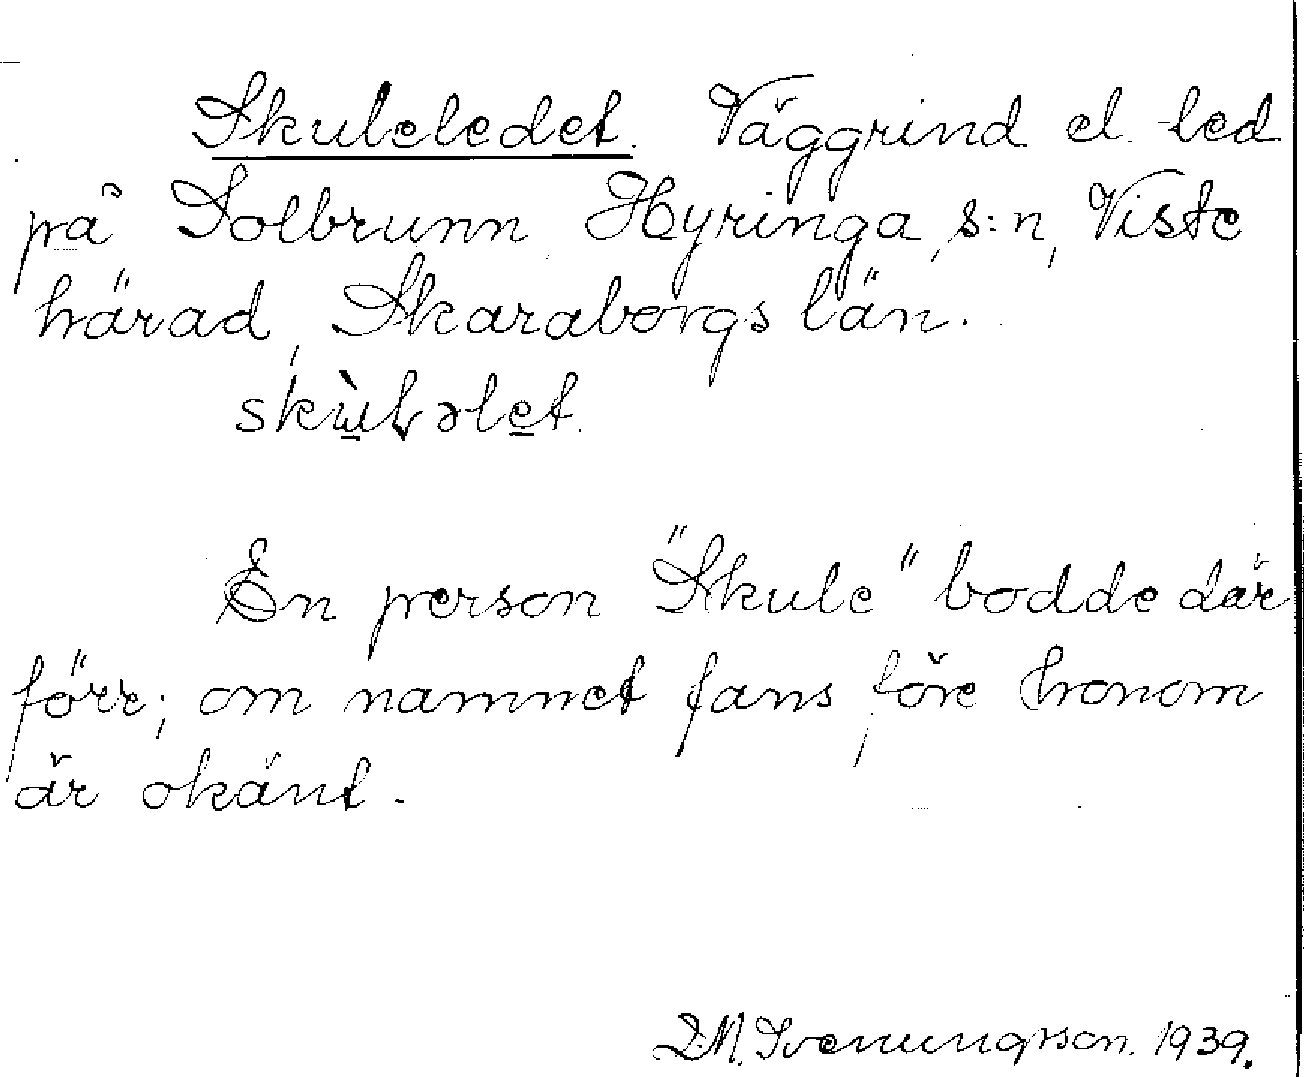 Skuleledet. Väggrind el. led
på Solbrunn Hyringa, s:n, Viste
härad, Skaraborgs län.
En person "Skule" bodde där
förr; om namnet fans före honom
är okänt.
Svenungsson. 1939.